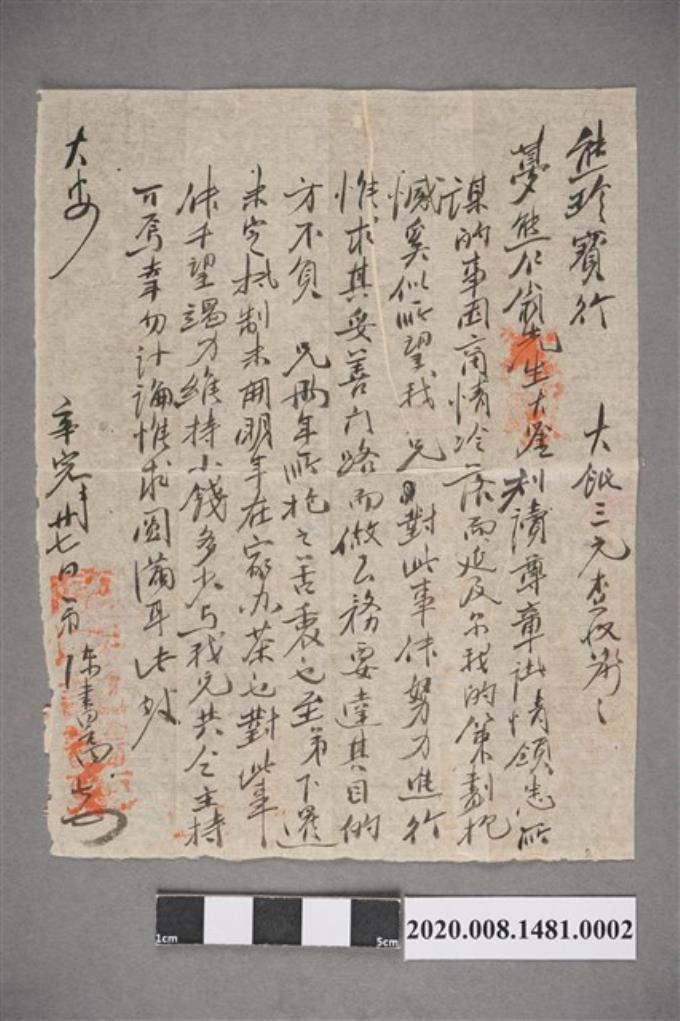 熊珍寶行 大銀三元查收
夢熊仁翁先生大鑒利讀尊章詳情領悉所
謀的事因商情冷落而延及尔我的策劃抱
憾奚似所望我兄對此事件努力進行
惟求其妥善門路而做公務要達其目的
方不負 兄期年所抱之苦衷也至弟下還
未定抵制未用明年在家办茶也對此事
件千望竭力維持小錢多少与我兄共仝主持
可焉幸勿計論惟求圓滿耳此啟
大安
年完月卅七日 弟陳書高
1cm 5cm
2020.008.1481.0002